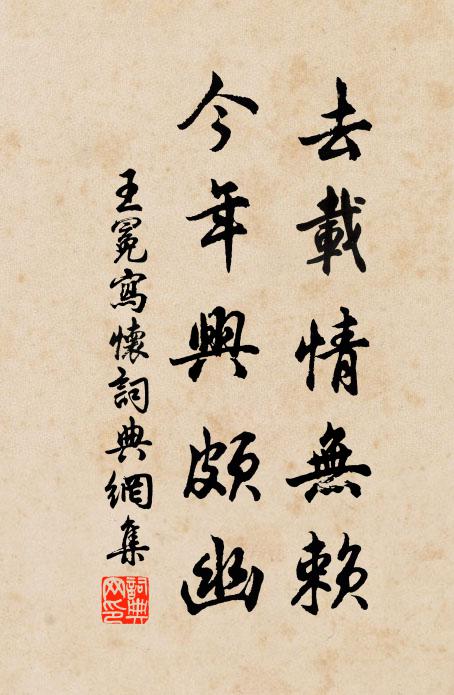 去載情無賴
今年興頗幽
王冕寫懷詞典網集
詞典
网印